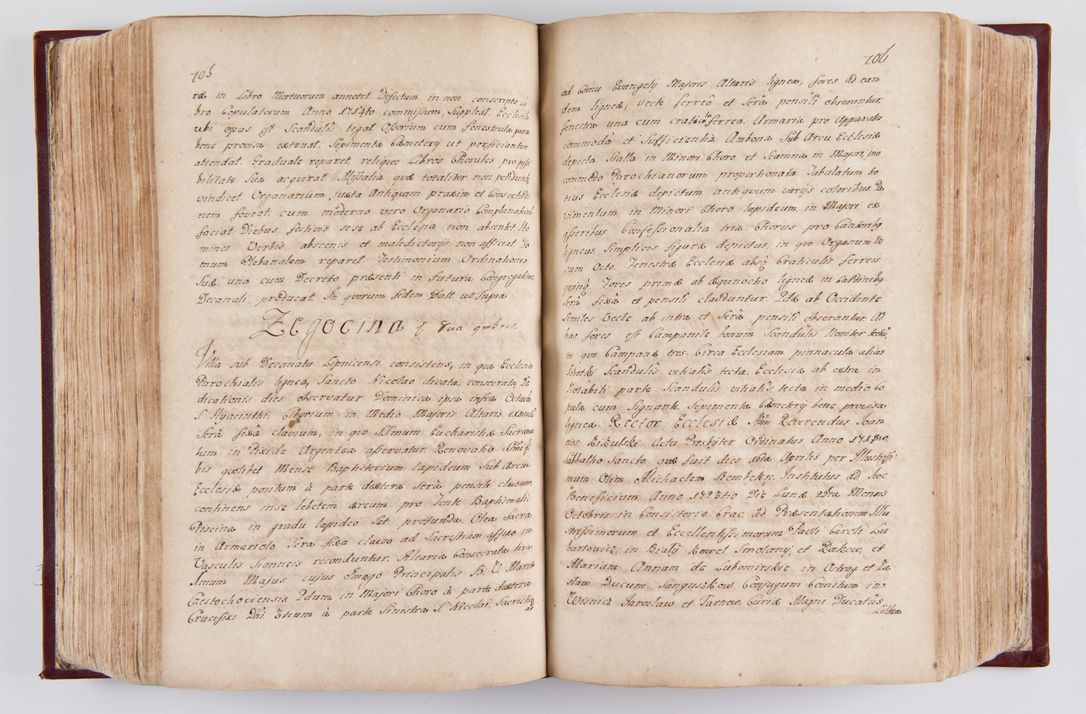 105
ræ in Libro Mortuorum annotet Defectum in non conscripto Li
bro Copulatorum Anno 1715to commissum, Suppleat. Ecclesia
ubi opus est Scandulis tegat Ossorium cum fenestrula
bene provisa extruat. Sepimenta Cæmeterij ut perficiantur
attendat. Graduale reparet, reliquos Libros Chorales pro possi
bilitate sua acquirat. Missalia quæ totaliter non
vindicet. Organarium juxta Antiquam praxim et Consvetudi
nem foveat, cum moderno vero Organario
faciat Diebus festivis sese ab Ecclesia non absentet Ho
mines Verbis obscenis et maledictorijs non afficiat. Do
mum Plebanalem reparet Testimonium Ordinationis
Suæ una cum Decreto præsenti in futura Congregatione
Decanali producat. In quorum fidem Datt ut Supra
Zegocina
Villa sub Decanatu Lipnicensi consistens, in qua Ecclesia
Parochialis lignea, Sancto Nicolao dicata, consecrata, De
dicationis dies observatur Dominica ipsa infra Octavam
S. Hyacinthi. Ciborium in Medio Majoris Altaris
Serâ fixâ clausum, in quo SSmum Eucharistiæ Sacramen
tum in Pixide Argentea asservatur. Renovatio
bis quolibet Mense. Baptisterium lapideum Sub Arcu
Ecclesiæ positum à parte dextera serâ pensili clausum
continens in se lebetem æreum pro fonte Baptismali.
Piscina in gradu lapideo sat profunda. Olea Sacra
in Armariolo Serâ fixâ clauso ad Sacristiam affixo in
Vasculis stanneis reconduntur. Altaria Consecrata tria
Imum Majus cujus Imago Principalis B. V. Mariæ
Czestochoviensis 2dum in Majori Choro à parte dextera
Crucifixi Dni 3tium à parte Sinistra S Nicolai. Sacristia
ad
106
ad Cornu Evangelij Majoris Altaris lignea, fores ad ean
dem ligneæ, vecte ferreo et Serâ pensili obserantur,
fenestra una cum crate ferrea. Armaria pro Apparatu
commoda et Sufficientia Ambona Sub Arcu Ecclesiæ
depicta Stalla in Minori Choro, et Scamna in Majori, pro
commodo Parochianorum proportionata. Tabulatum to
tius Ecclesiæ depictum antiquum varijs coloribus Pa
vimentum in Minori Choro lapideum, in Majori ex
asseribus. Confessionalia tria. Chorus pro Cantoribq
ligneus, Simplicis figuræ depictus, in quo Organum Vo
cum Octo. Fenestræ Ecclesiæ absq Craticulis ferreis
quinq. Fores primæ ab Aquinocho ligneæ in Cardinibq
Serâ fixâ et pensili clauduntur. 2dæ ab Occidente
Similes Vecte ab intra et Serâ pensili obserantur. Ad
has fores est Campanile bonum Scandulis
in quo Campanæ tres. Circa Ecclesiam pinnacula alias
Soboty Scandulis vitialis tecta. Ecclesia ab extra in
Notabili parte Scandulis vitialis tecta in medio co
pula cum Signante. Sepimenta Cæmeterij bene provisa
lignea. Rector Ecclesiæ Adm Reverendus Joan
nes Bikulski Actu Presbyter Ordinatus Anno 1718vo
Sabbatho Sancto, quæ fuit dies 16ta Aprilis per Illustrissi
mum Olim Michaelem Szembek. Institutus ad hoc
Beneficium Anno 1723tio Die Lunæ 25ta Mensis
Octobris in Consistorio Crac: ad Præsentationem Illu
strissimorum et Excellentissimorum Pauli Caroli Lu
bartowicz, in Bialy Kowel Smolany, et Rakow, et
Mariam, Annam de Lubomirskie in Ostrog et Za
slaw Ducum Sanguszkow Conjugum Comitum in
Wisnicz Jaroslaw et Tarnow, Curiæ Magni Ducatûs